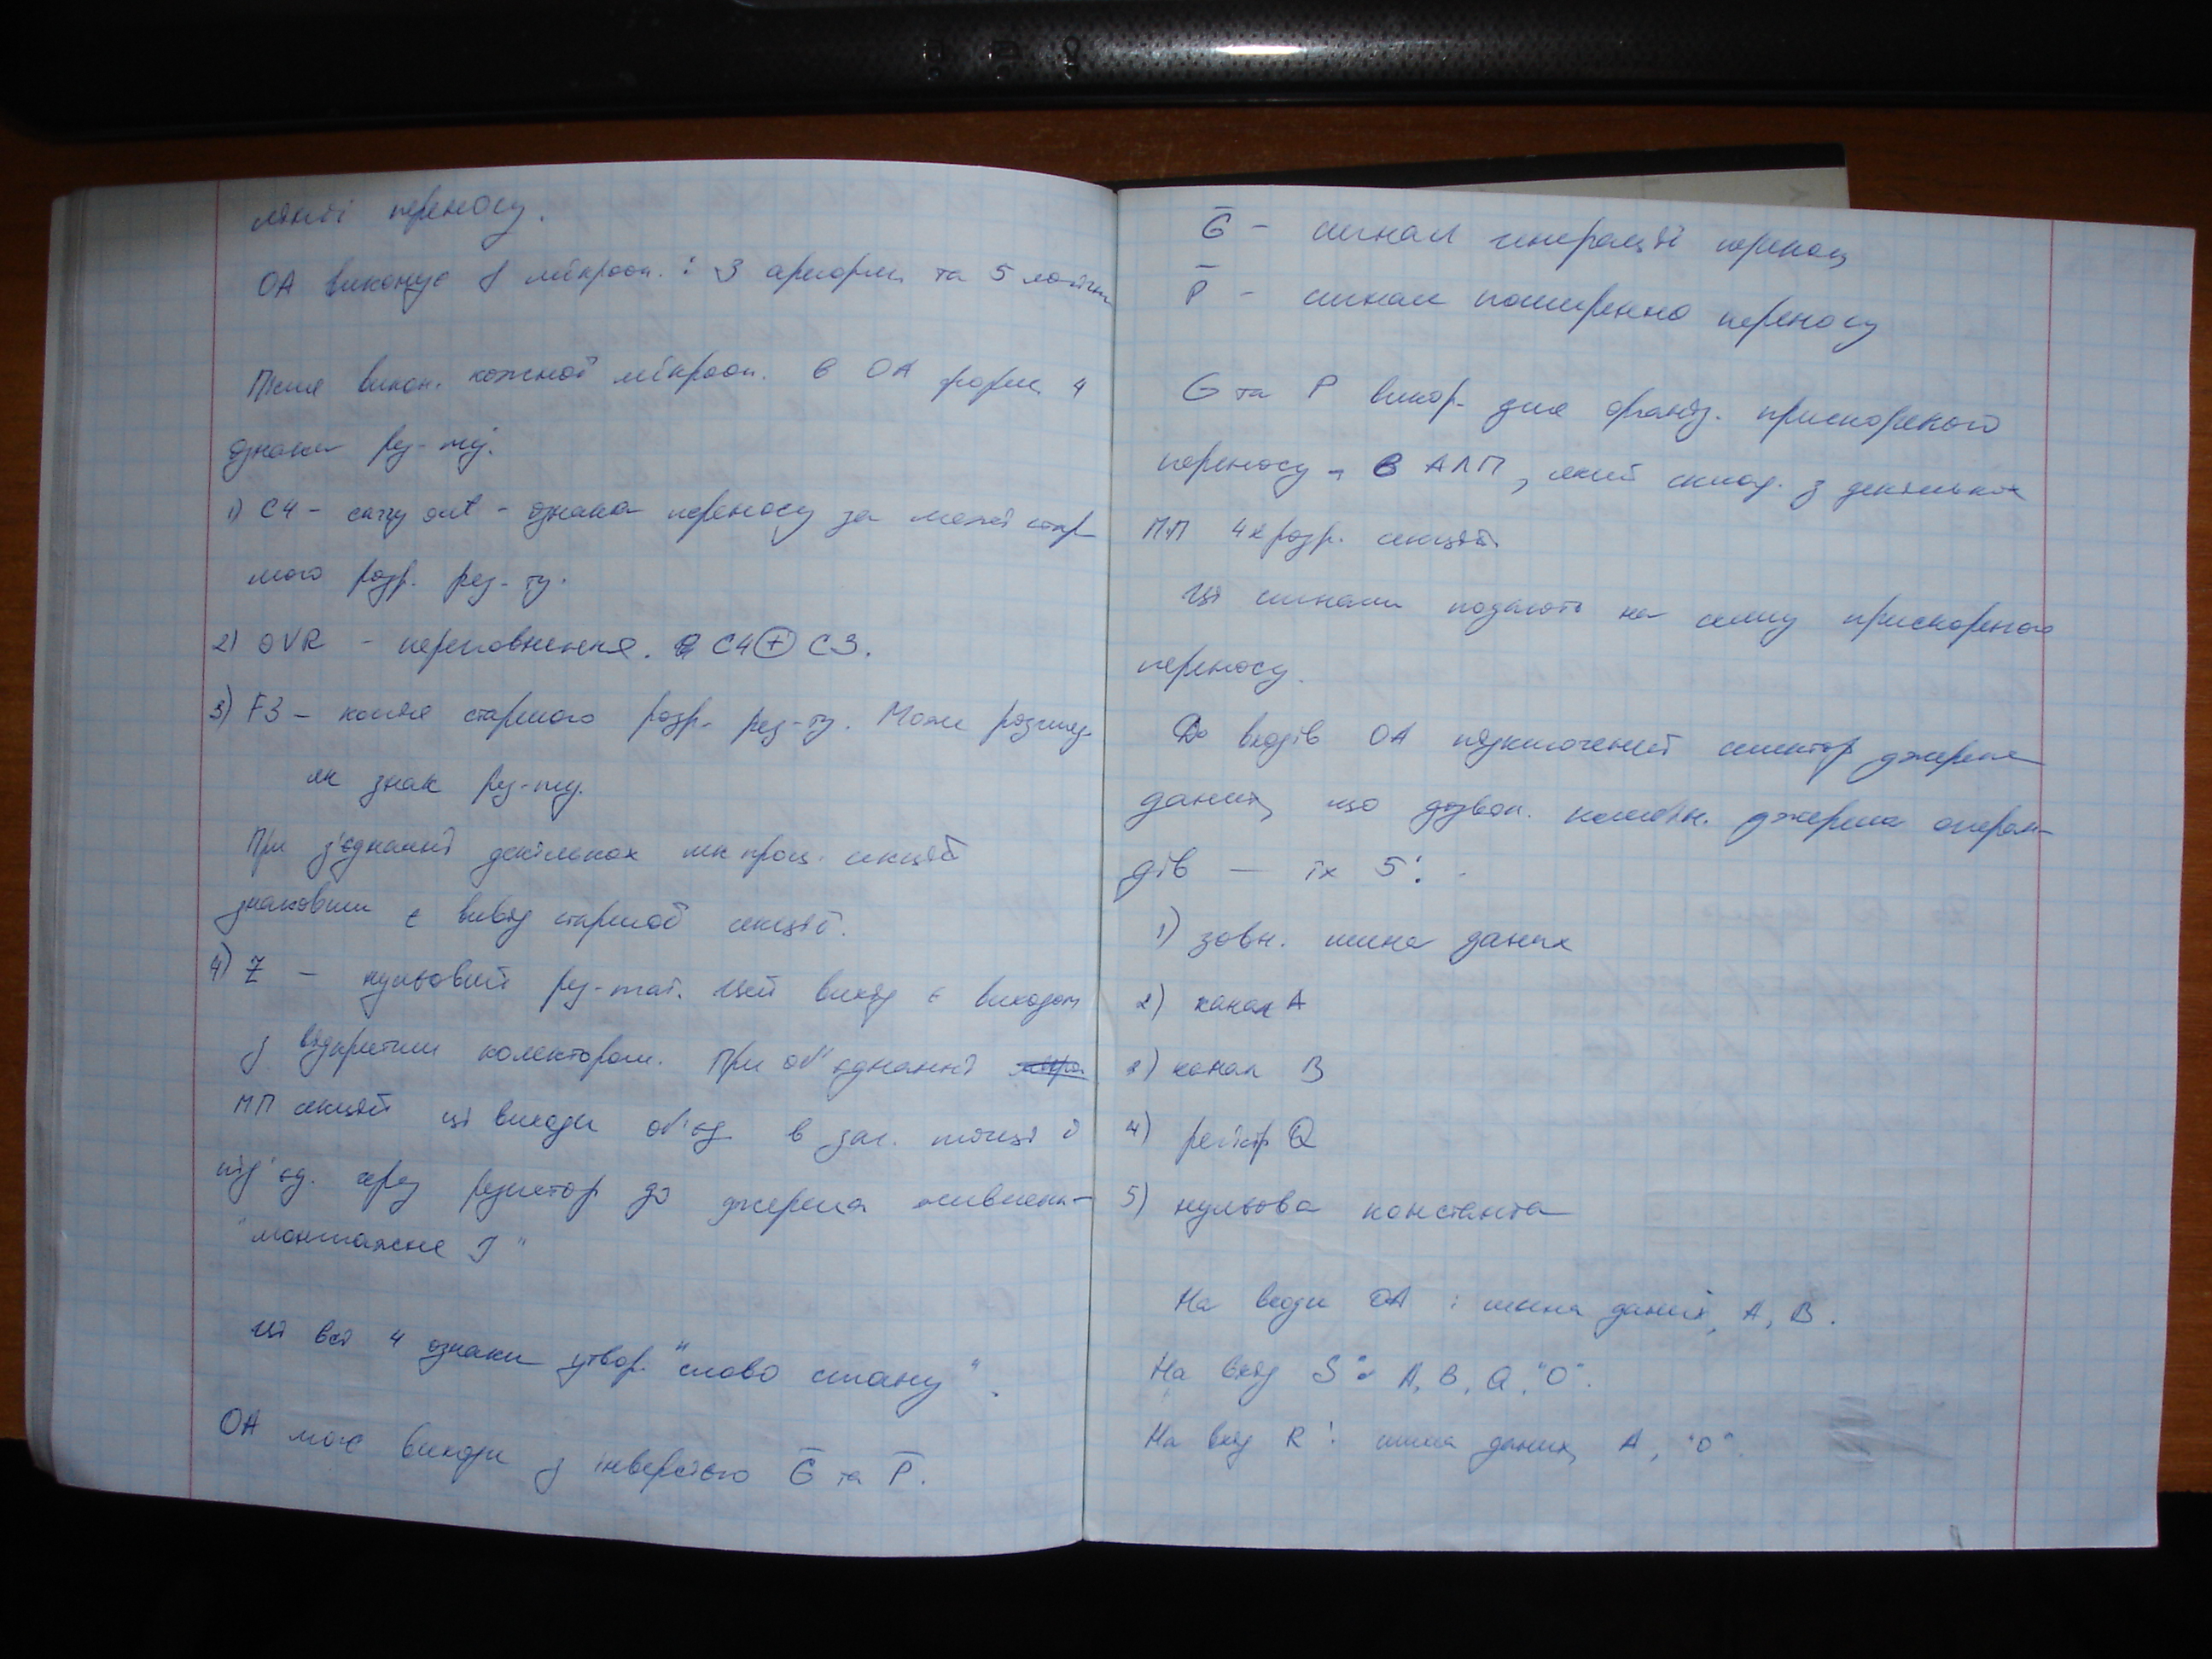 лінії переносу.
ОА виконує 8 мікрооп. : 3 арифм. та 5 логічн
Після викон. кожної мікрооп. в ОА форм. 4
ознаки рез-ту:
1) C4 - carry out - ознака переносу за межі стар-
шого розр. рез-ту.
2) OVR - переповнення. C4 ⊕ C3.
3) F3 - копія старшого розр. рез-ту. Може розгляд.
як знак рез-ту.
При з'єднанні декількох мк проц. секцій
знаковим є вивід старшої секції.
4) Z - нульовий рез-тат. Цей вихід є виходом
з відкритим колектором. При об'єднанні
МП секцій ці виходи об'єд. в заг. точці і
під'єд. через резистор до джерела живлення-
"монтажне І"
Ці всі 4 ознаки утвор. "слово стану".
ОА має виходи з інверсією G̅ та P̅.
G̅ - сигнал генерації переносу
P̅ - сигнал поширення переносу
G та P викор. для організ. прискореного
переносу в АЛП, який склад. з декількох
МП 4х розр. секцій.
Ці сигнали подають на схему прискореного
переносу.
До входів ОА підключений селектор джерела
даних, що дозвол. комбін. джерела операн-
дів - їх 5:
1) зовн. шина даних
2) канал A
3) канал B
4) регістр Q
5) нульова константа
На входи ОА : шина даних, A, B.
На вхід S: A, B, Q, "0".
На вхід R: шина даних, A, "0".